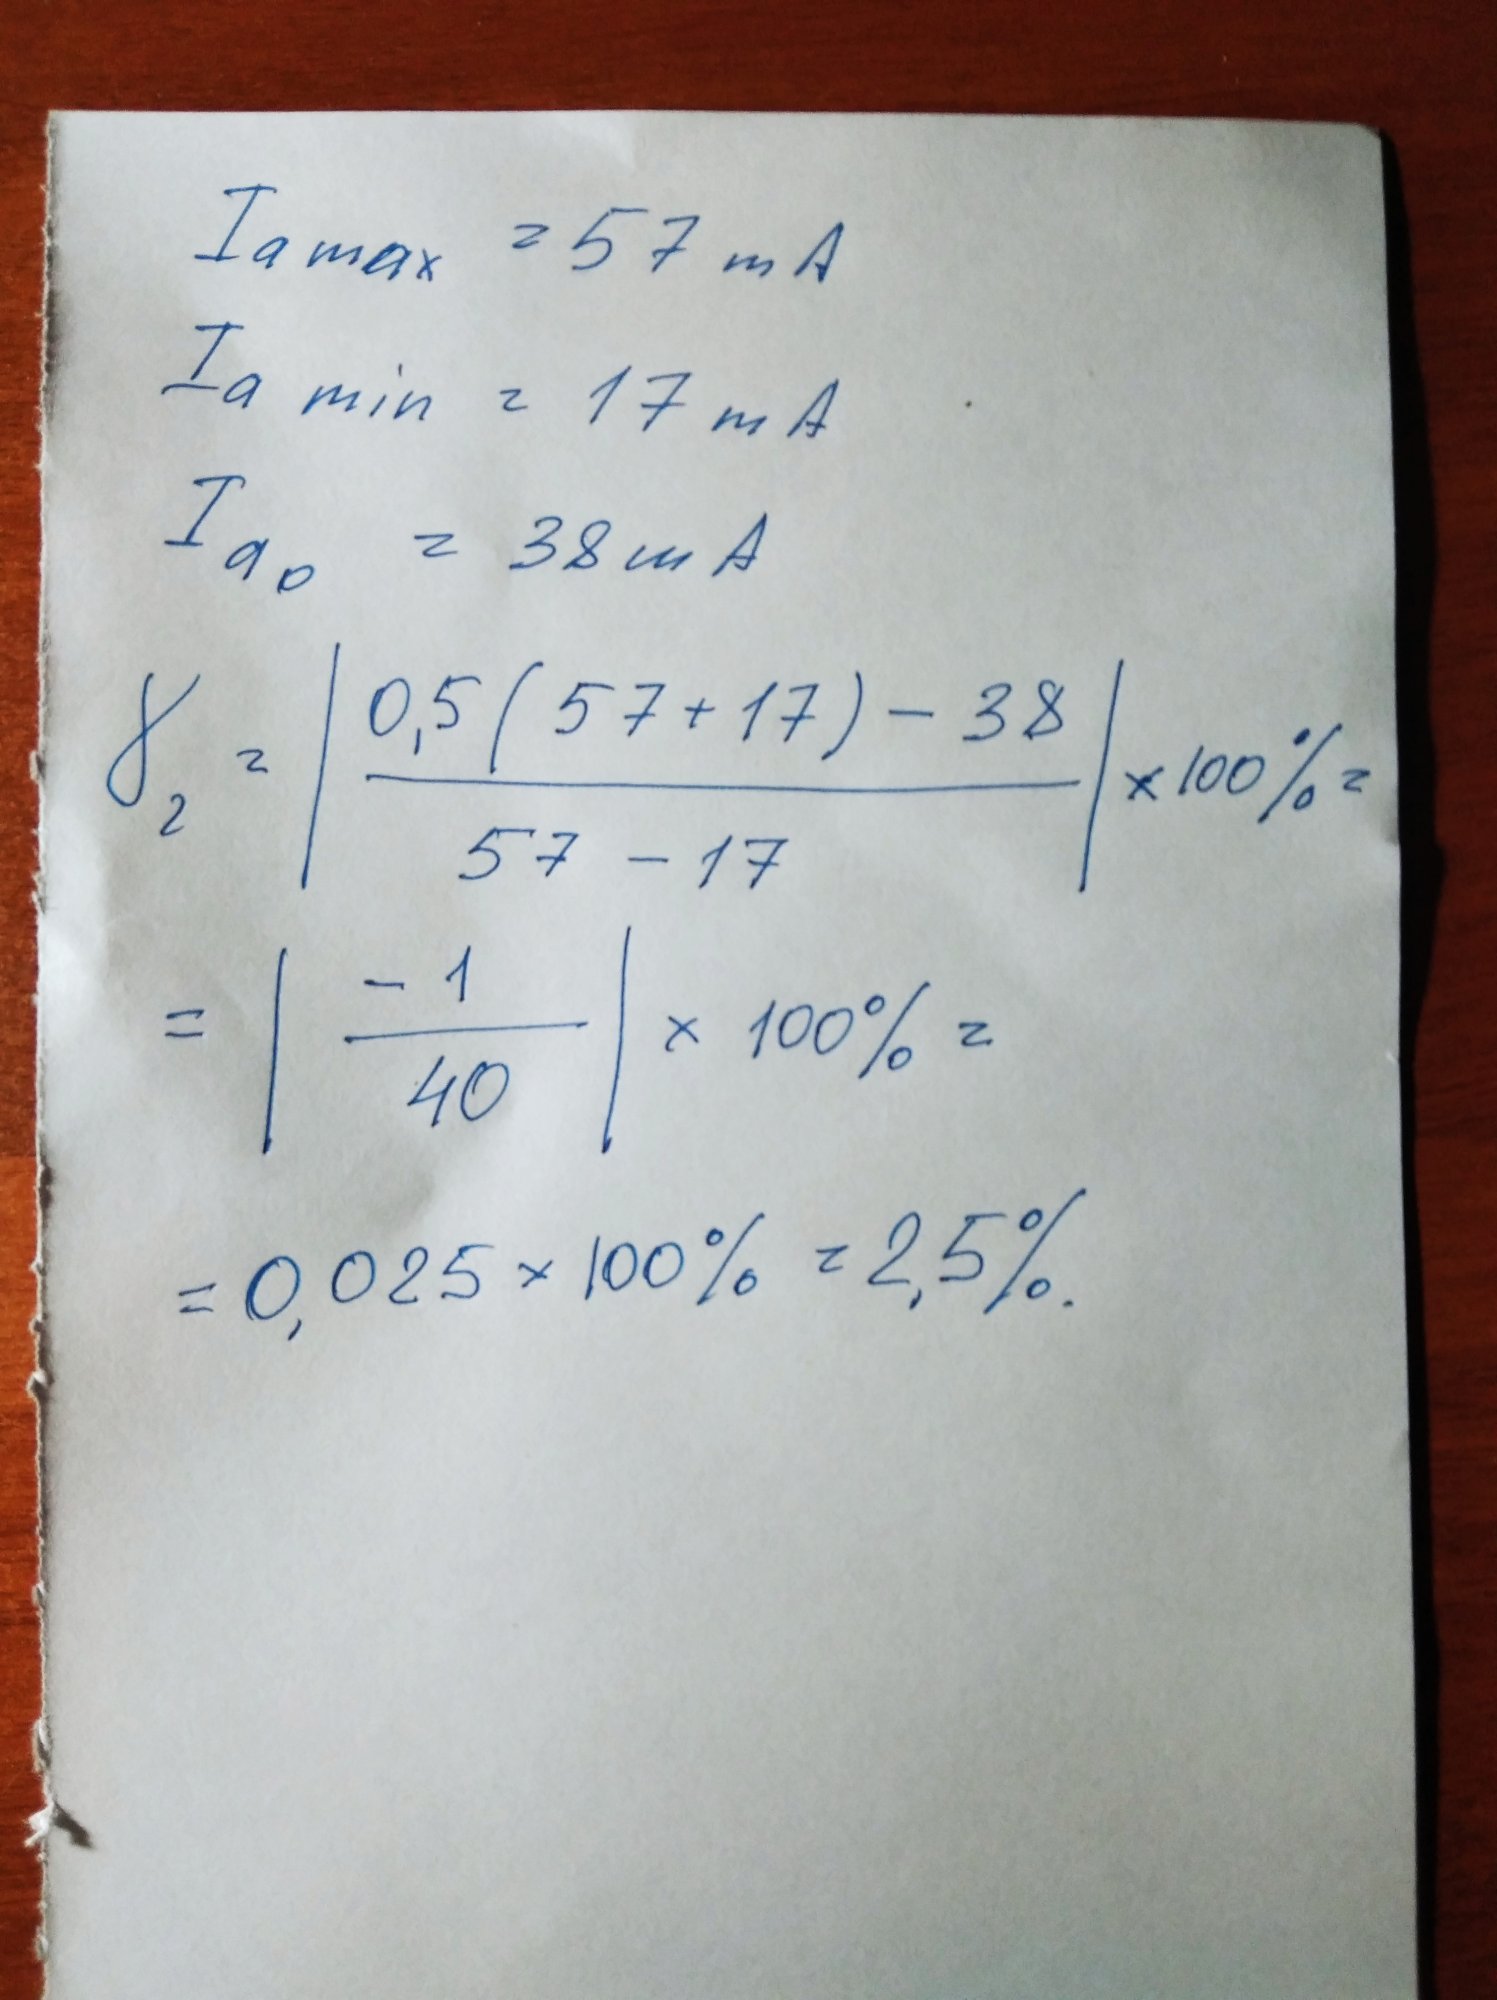 Ia max = 57 mA
Ia min = 17 mA
Ia0 = 38 mA
γ2 = | 0,5(57+17) - 38 / 57 - 17 | × 100% =
= | -1 / 40 | × 100% =
= 0,025 × 100% = 2,5%.